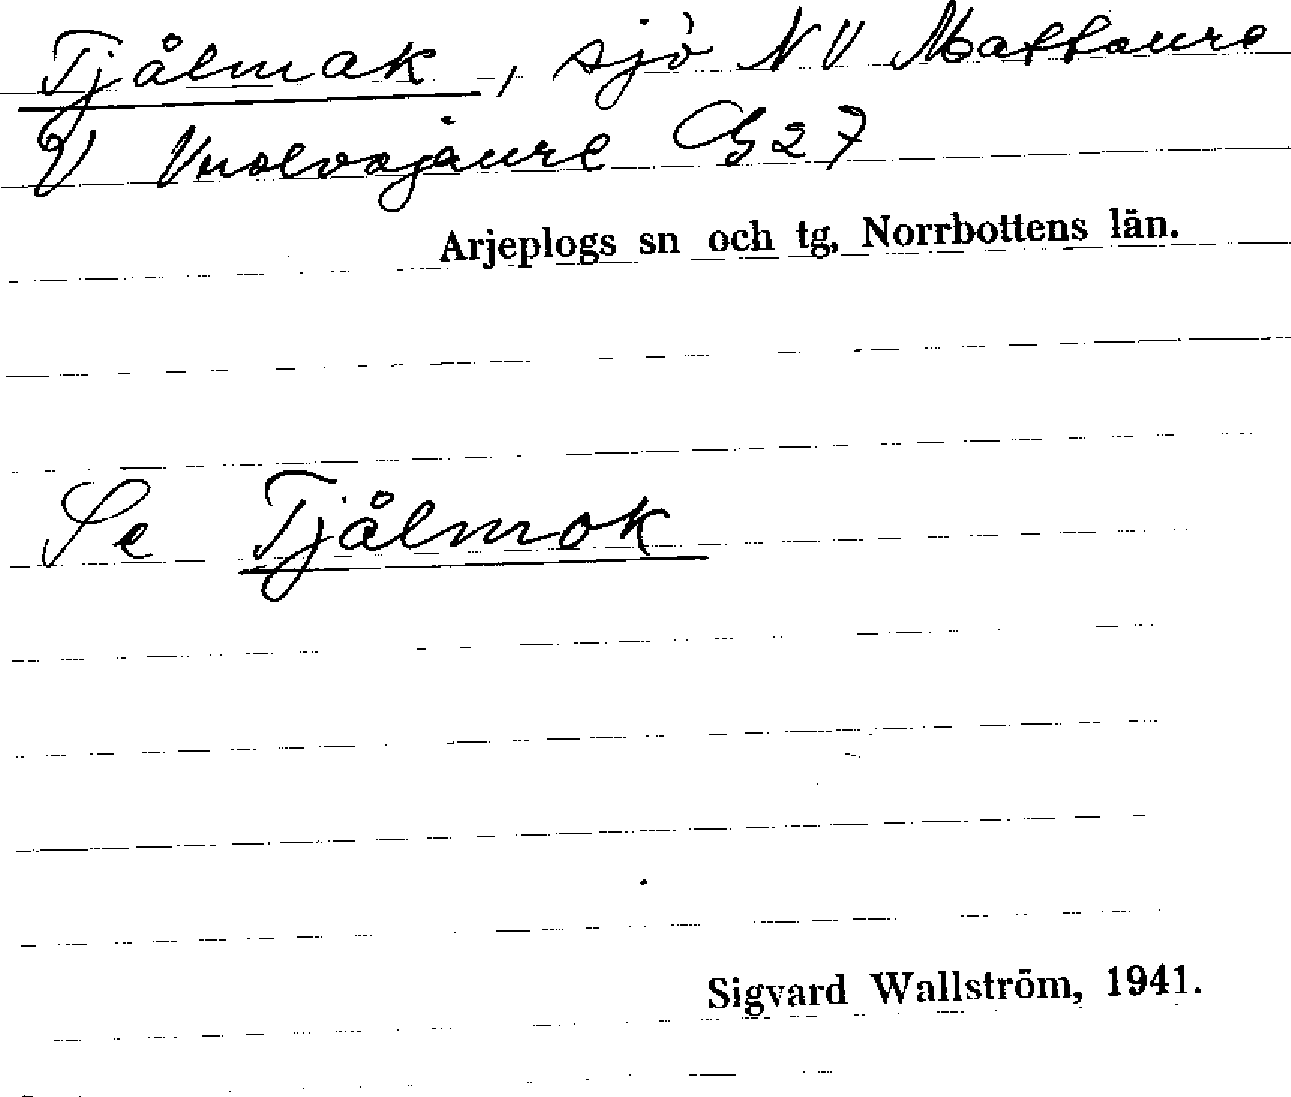 Tjålmak, sjö NV Mattaure
V Vuolvojaure G27
Arjeplogs sn och tg, Norrbottens län.
Se Tjålmok
Sigvard Wallström, 1941.